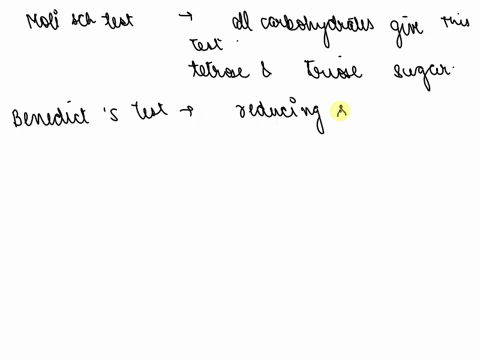 Molisch test → all carbohydrates give this
test.
tetrose & triose sugar.
Benedict's test → reducing s